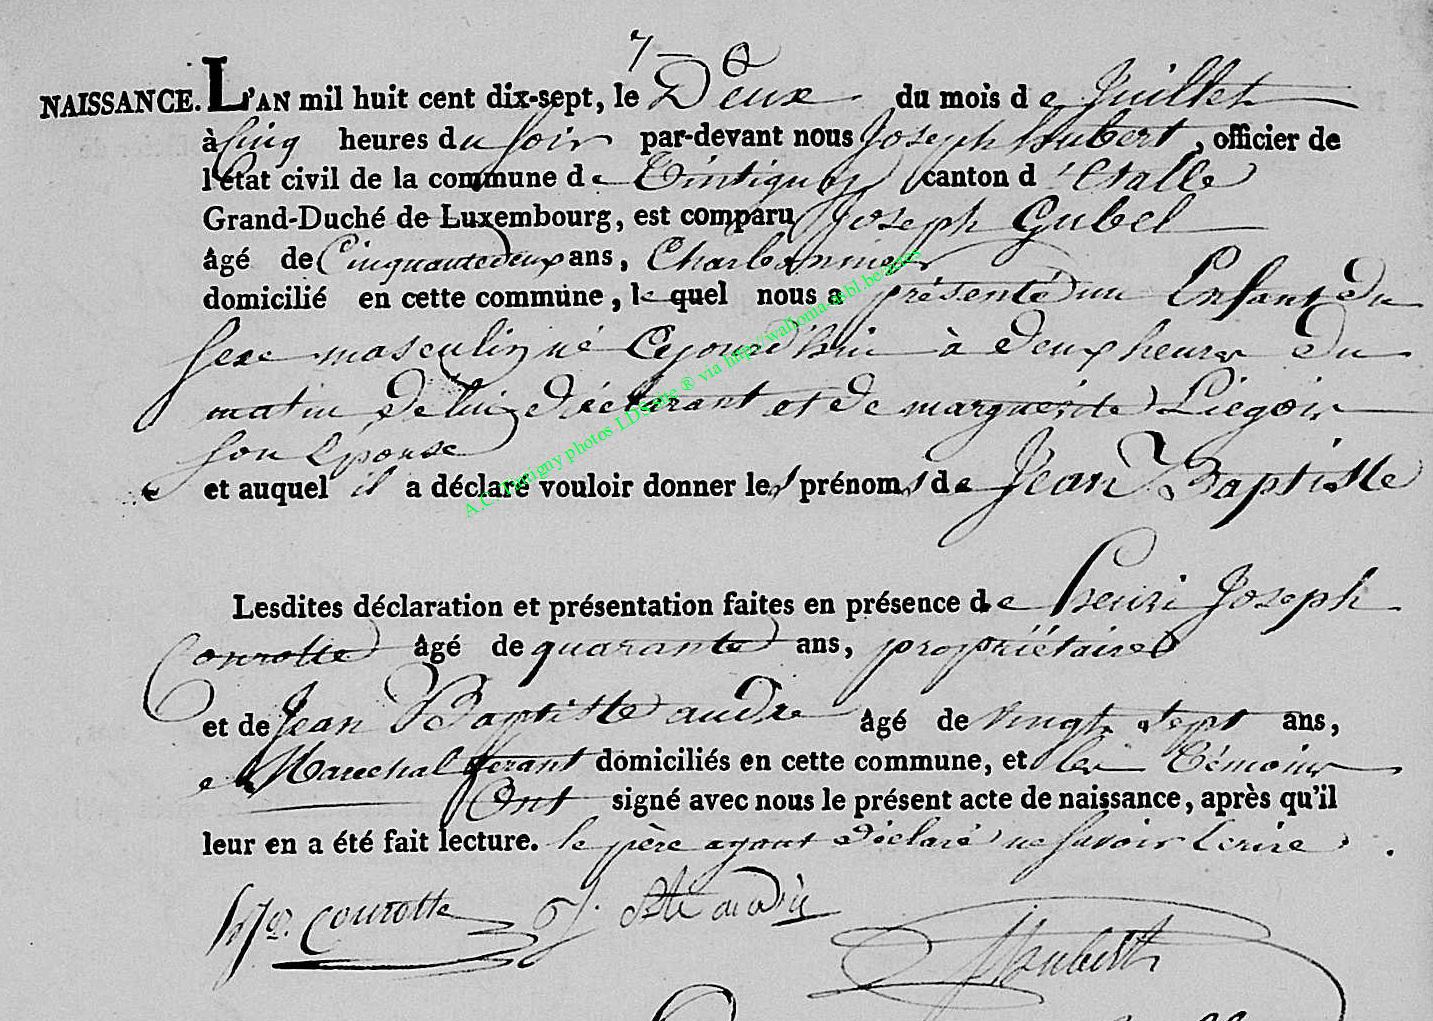 7
NAISSANCE. L'AN mil huit cent dix-sept, le Deux du mois de Juillet
à Cinq heures du soir par-devant nous Joseph hubert, officier de
l'état civil de la commune de Tintigny canton d'Etalle
Grand-Duché de Luxembourg, est comparu Joseph Gubel
âgé de Cinquante deux ans, Charbonnier
domicilié en cette commune, le quel nous a présenté un Enfant du
sexe masculin né Cejourd'hui à deux heures du
matin de lui déclarant et de marguerite Liegois
son Epouse
et auquel il a déclaré vouloir donner les prénoms de Jean Baptiste
Lesdites déclaration et présentation faites en présence de henri Joseph
Courotte âgé de quarante ans, propriétaire
et de Jean Baptiste andre âgé de vingt sept ans,
Marechal ferant domiciliés en cette commune, et les Témoins
Ont signé avec nous le présent acte de naissance, après qu'il
leur en a été fait lecture. le père ayant déclaré ne savoir Ecrire.
hJo. courotte J. Bte andré
JHubert
A.C. Tintigny photos LDS site ® via http://wallonia.asbl.be/actes